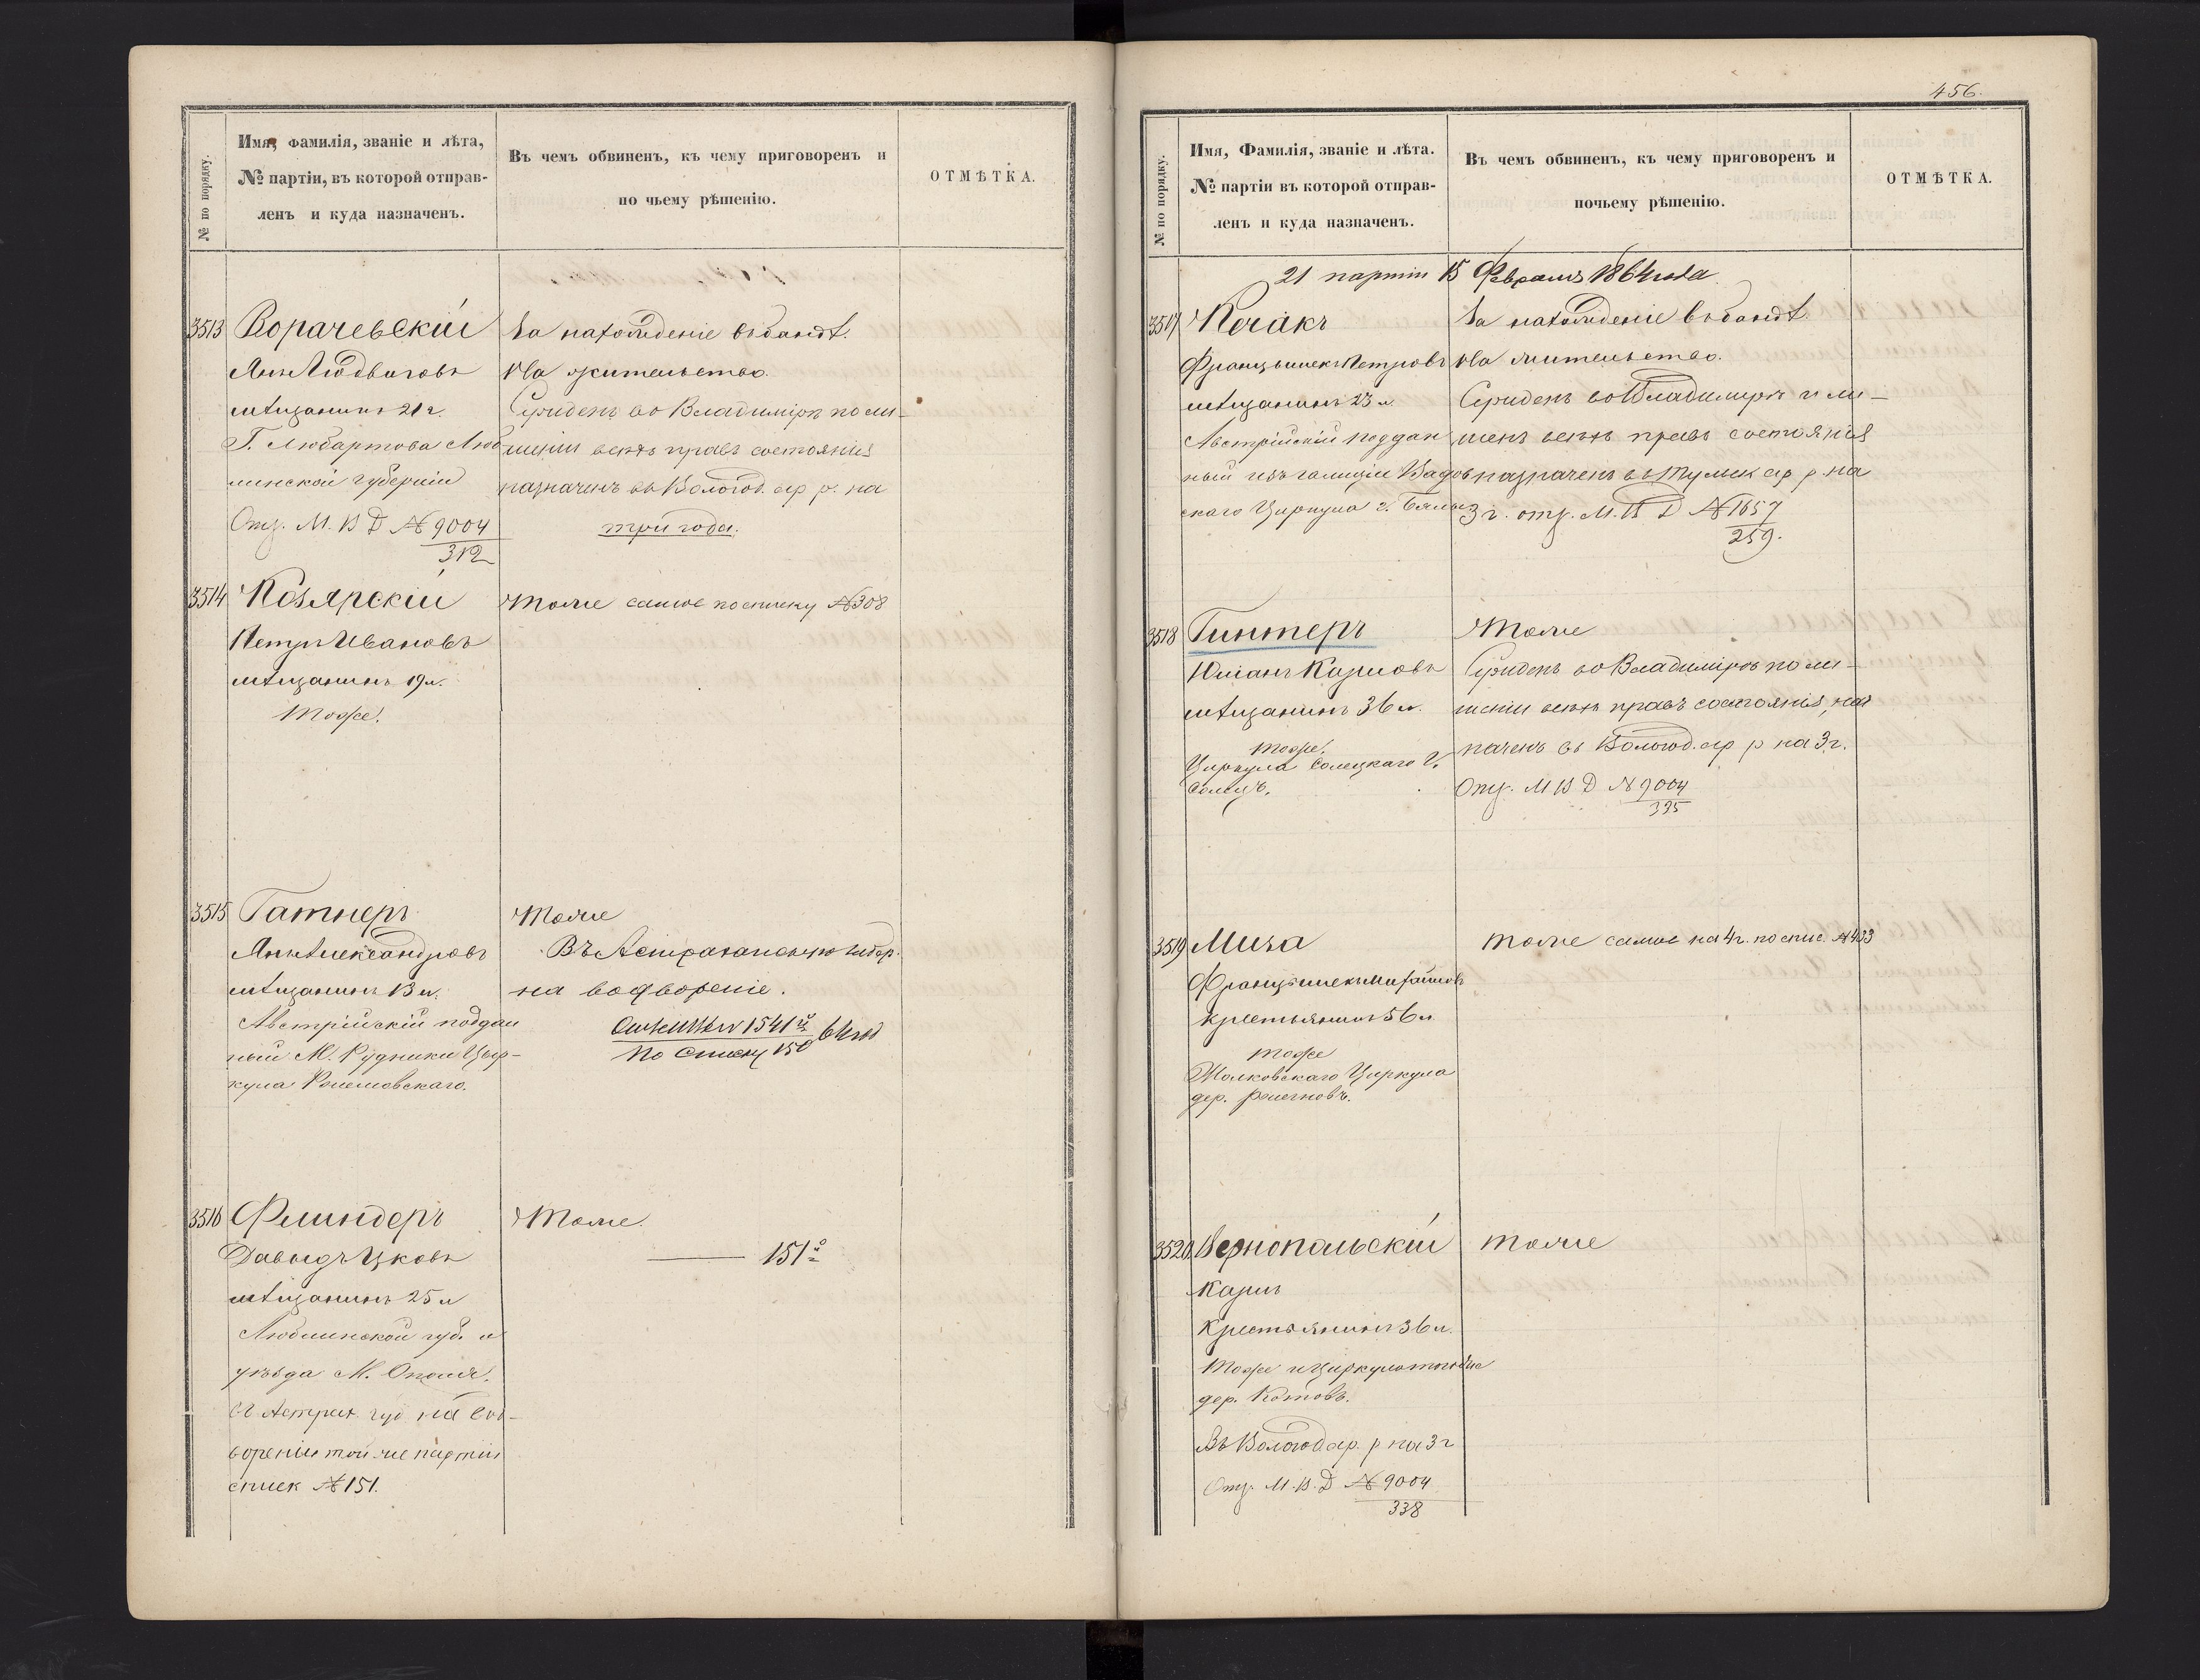 № по порядку.
Имя, Фамилія, званіе и лѣта,
№ партіи, въ которой отправ-
ленъ и куда назначенъ.
Въ чемъ обвиненъ, къ чему приговоренъ и
по чьему рѣшенію.
ОТМѢТКА.
3513 Ворачевскій
Янъ Людвиговъ
мѣщанинъ 21 г.
Г. Любартова Люб
линской губерніи
Отз. М. В Д № 9004
312
За нахожденіе въ бандѣ.
На жительство.
Сужденъ во Владимірѣ по ли-
шеніи всѣхъ правъ состоянія
назначенъ въ Вологод. ар р. на
три года.
3514 Козярскій
Петръ Ивановъ
мѣщанинъ 19 л.
Тоже.
Тоже самое по списку № 308
3515 Гатнеръ
Янъ Александровъ
мѣщанинъ 13 л.
Австрійскій поддан
ный М. Рудники Цыр-
кула
Тоже
Въ Астраханскую губер.
на водвореніе.
1541
По списку 150
3516 Флиндеръ
Давыдъ Ицковъ
мѣщанинъ 25 л
Люблинской губ. и
уѣзда М. Ополя.
въ Астрах. губ на вод-
вореніи той-же партіи
списк № 151.
Тоже.
151
456.
№ по порядку.
Имя, Фамилія, званіе и лѣта.
№ партіи въ которой отправ-
ленъ и куда назначенъ.
Въ чемъ обвиненъ, къ чему приговоренъ и
почьему рѣшенію.
ОТМѢТКА.
21 партіи 15 Февраля 1864 года.
3517 Кечакъ
Францышекъ Петровъ
мѣщанинъ 23 л.
Австрійскій поддан
ный изъ Галиціи Вадов
скаго Циркула г. Бялы
За нахожденіе въ бандѣ.
На жительство.
Сужденъ во Владимирѣ и ли-
шенъ всѣхъ правъ состоянія
назначенъ въ Тульск ар р. на
3 г. отз. М. В Д № 1657
259.
3518 Гинтеръ
Юліанъ Карловъ
мѣщанинъ 36 л.
тоже.
Циркула Солецкаго г.
Солецъ.
Тоже
Сужденъ во Владимірѣ по ли-
шеніи всѣхъ правъ состоянія, наз
наченъ въ Вологод. ар р на 3 г.
Отз. М В Д № 9004
395
3519 Миза
Францышекъ Михайловъ
крестьянинъ 56 л
тоже
Жолковскаго Циркула
дер.
тоже самое на 4 г. по спис. № 433
3520 Вернопольскій
Карлъ
Крестьянинъ 36 л.
Тоже и Циркула
дер. Котовъ.
Въ Вологод. ар. р на 3 г
Отз. М. В. Д № 9004
338
тоже